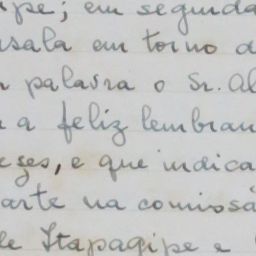 ipe; em segunda
sala em torno d
palavra o Sr. Al
a feliz lembran
eses, e que indica
arte na comissã
de Itapagipe e